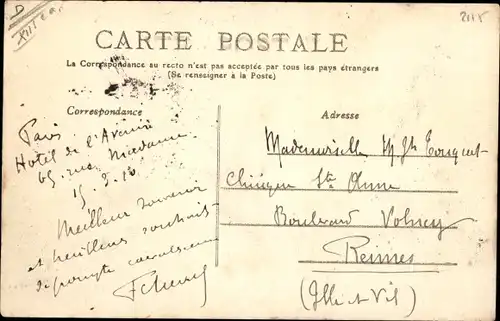 CARTE POSTALE
La Correspondance au recto n'est pas acceptée par tous les pays étrangers
(Se renseigner à la Poste)
Correspondance
Adresse
Paris
Hotel de l'Avenir
65, rue Madame
Meilleur souvenir
et meilleurs souhaits
de prompte
Mademoiselle
Clinique Ste Anne
Boulevard Volney
Rennes
(Ille et Vil)